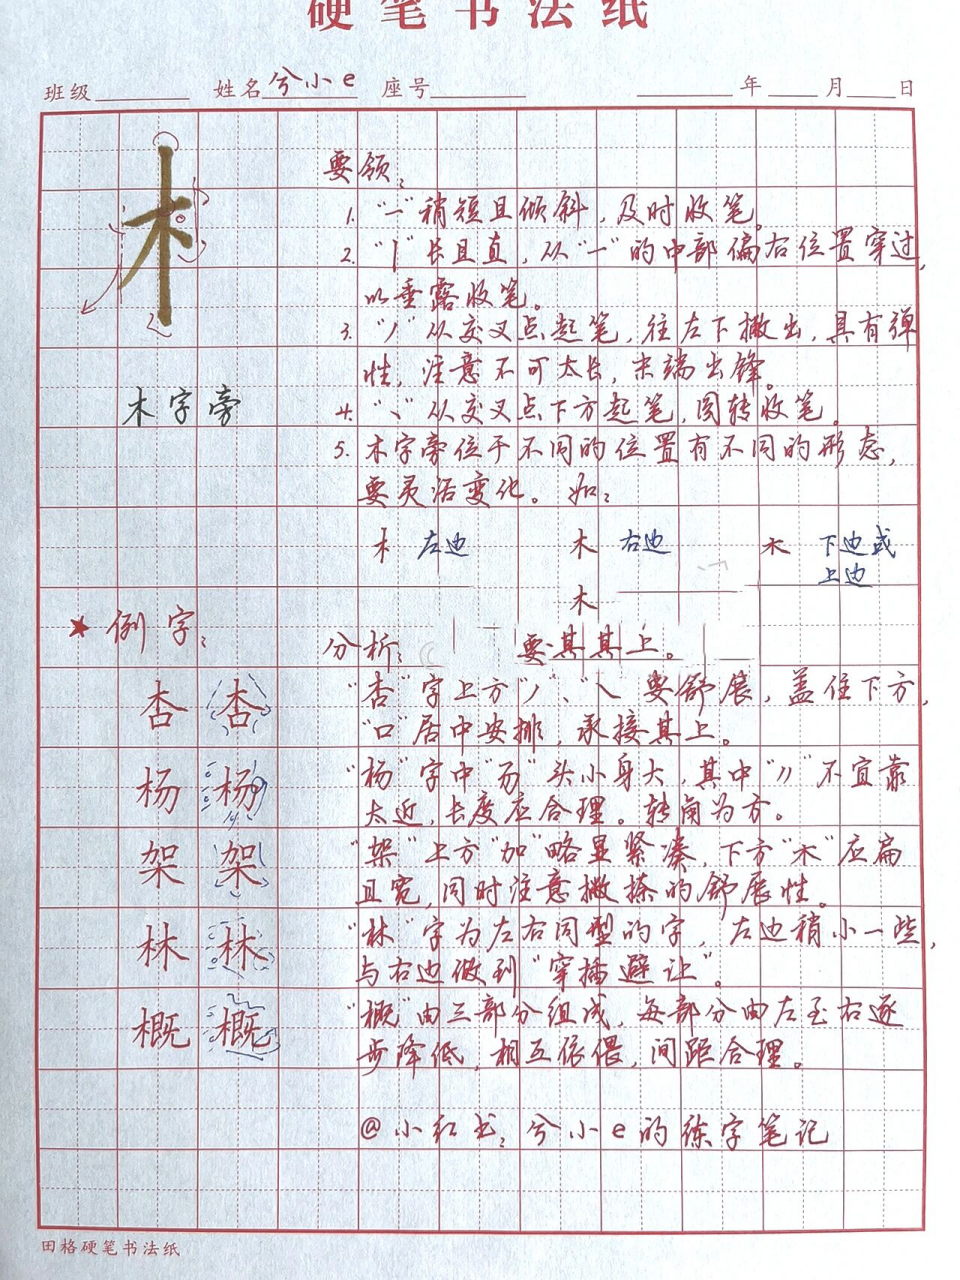 硬笔书法纸
班级 姓名 兮小e 座号 年 月 日
木
木字旁
要领：
1. “一”稍短且倾斜，及时收笔。
2. “丨”长且直，从“一”的中部偏右位置穿过，
以垂露收笔。
3. “丿”从交叉点起笔，往左下撇出，具有弹
性，注意不可太长，末端出锋。
4. “丶”从交叉点下方起笔，圆转收笔。
5. 木字旁位于不同的位置有不同的形态，
要灵活变化。如：
木 左边 木 右边 木 下边或
上边
木
★例字：
分析： 要其其上。
杏 杏 “杏”字上方“丿”、“㇏”要舒展，盖住下方，
“口”居中安排，承接其上。
杨 杨 “杨”字中“㐆”头小身大，其中“丿丿”不宜靠
太近，长度应合理。转角为方。
架 架 “架”上方“加”略显紧凑，下方“木”应扁
且宽，同时注意撇捺的舒展性。
林 林 “林”字为左右同型的字，左边稍小一些，
与右边做到“穿插避让”。
概 概 “概”由三部分组成，每部分由左至右逐
步降低，相互依偎，间距合理。
@小红书：兮小e的练字笔记
田格硬笔书法纸